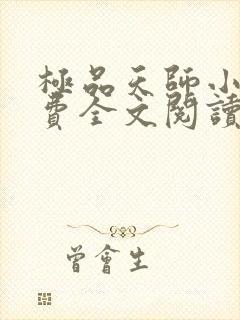 極品天師小
費全文閱讀
曾會生